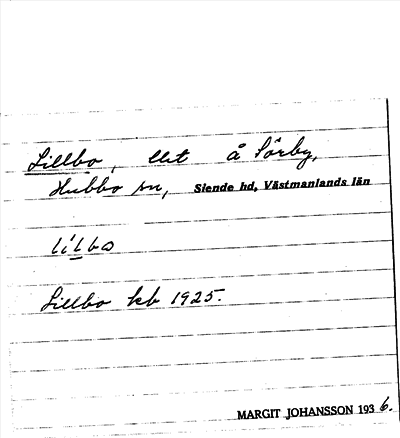 Lillbo, llt å Sörby,
Hubbo sn, Siende hd, Västmanlands län
li'lbo
Lillbo kb 1925.
MARGIT JOHANSSON 1936.